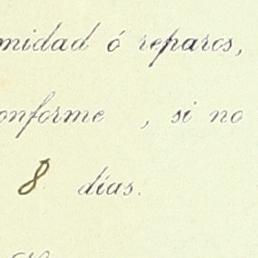 midad ó reparos,
onforme , si no
8 días.